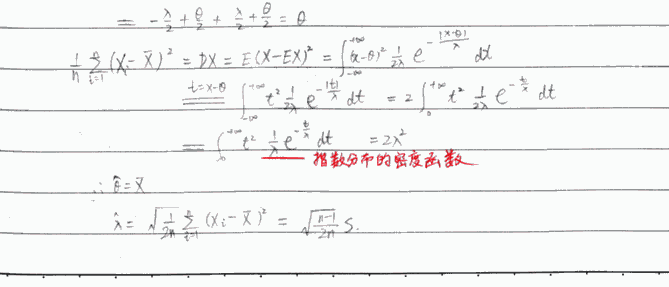 = -λ/2 + θ/2 + λ/2 + θ/2 = θ
1/n ∑_{i=1}^{n} (Xi - X̄)² = DX = E(X-EX)² = ∫_{-∞}^{+∞} (x-θ)² 1/2λ e^{-|x-θ|/λ} dt
t=x-θ ∫_{-∞}^{+∞} t² 1/2λ e^{-|t|/λ} dt = 2∫_{0}^{+∞} t² 1/2λ e^{-t/λ} dt
= ∫_{0}^{+∞} t² 1/λ e^{-t/λ} dt = 2λ²
指数分布的密度函数
∴ θ̂ = X̄
λ̂ = √(1/2n ∑_{i=1}^{n} (Xi - X̄)²) = √(n-1/2n) S.